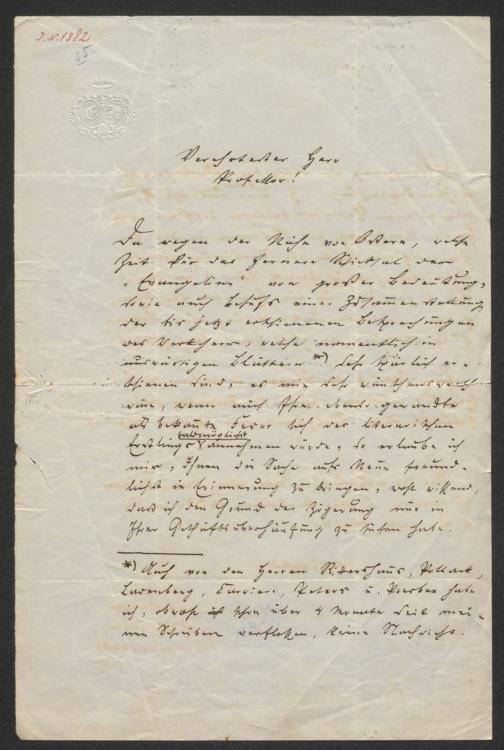 J.N. 1382
35
Verehrtester Herr
Professor!
Da wegen der Nähe von Ostern, welche
Zeit für das fernere Schicksal der
„Evangeline“ von großer Bedeutung,
sowie auch behufs einer Zusammenstellung
der bis jetzt erschienenen Besprechungen
des Werkchens, welche namentlich in
auswärtigen Blättern *) sehr spärlich er-
schienen sind, es mir sehr wünschenswerth
wäre, wenn auch Ihre ebenso gewandte
als bekannte Feder sich des literarischen
Erstlings baldmöglichst annehmen würde, so erlaube ich
mir, Ihnen die Sache aufs Neue freund-
lichst in Erinnerung zu bringen, wohl wissend,
daß ich den Grund der Zögerung nur in
Ihrer Geschäftsüberhäufung zu suchen habe.
*) Auch von den Herren Rittershaus, Pollack,
Ladenberg, Carriere, Peters u. habe
ich, obwohl schon über 4 Monate seit mei-
nem Schreiben verflossen, keine Nachricht.